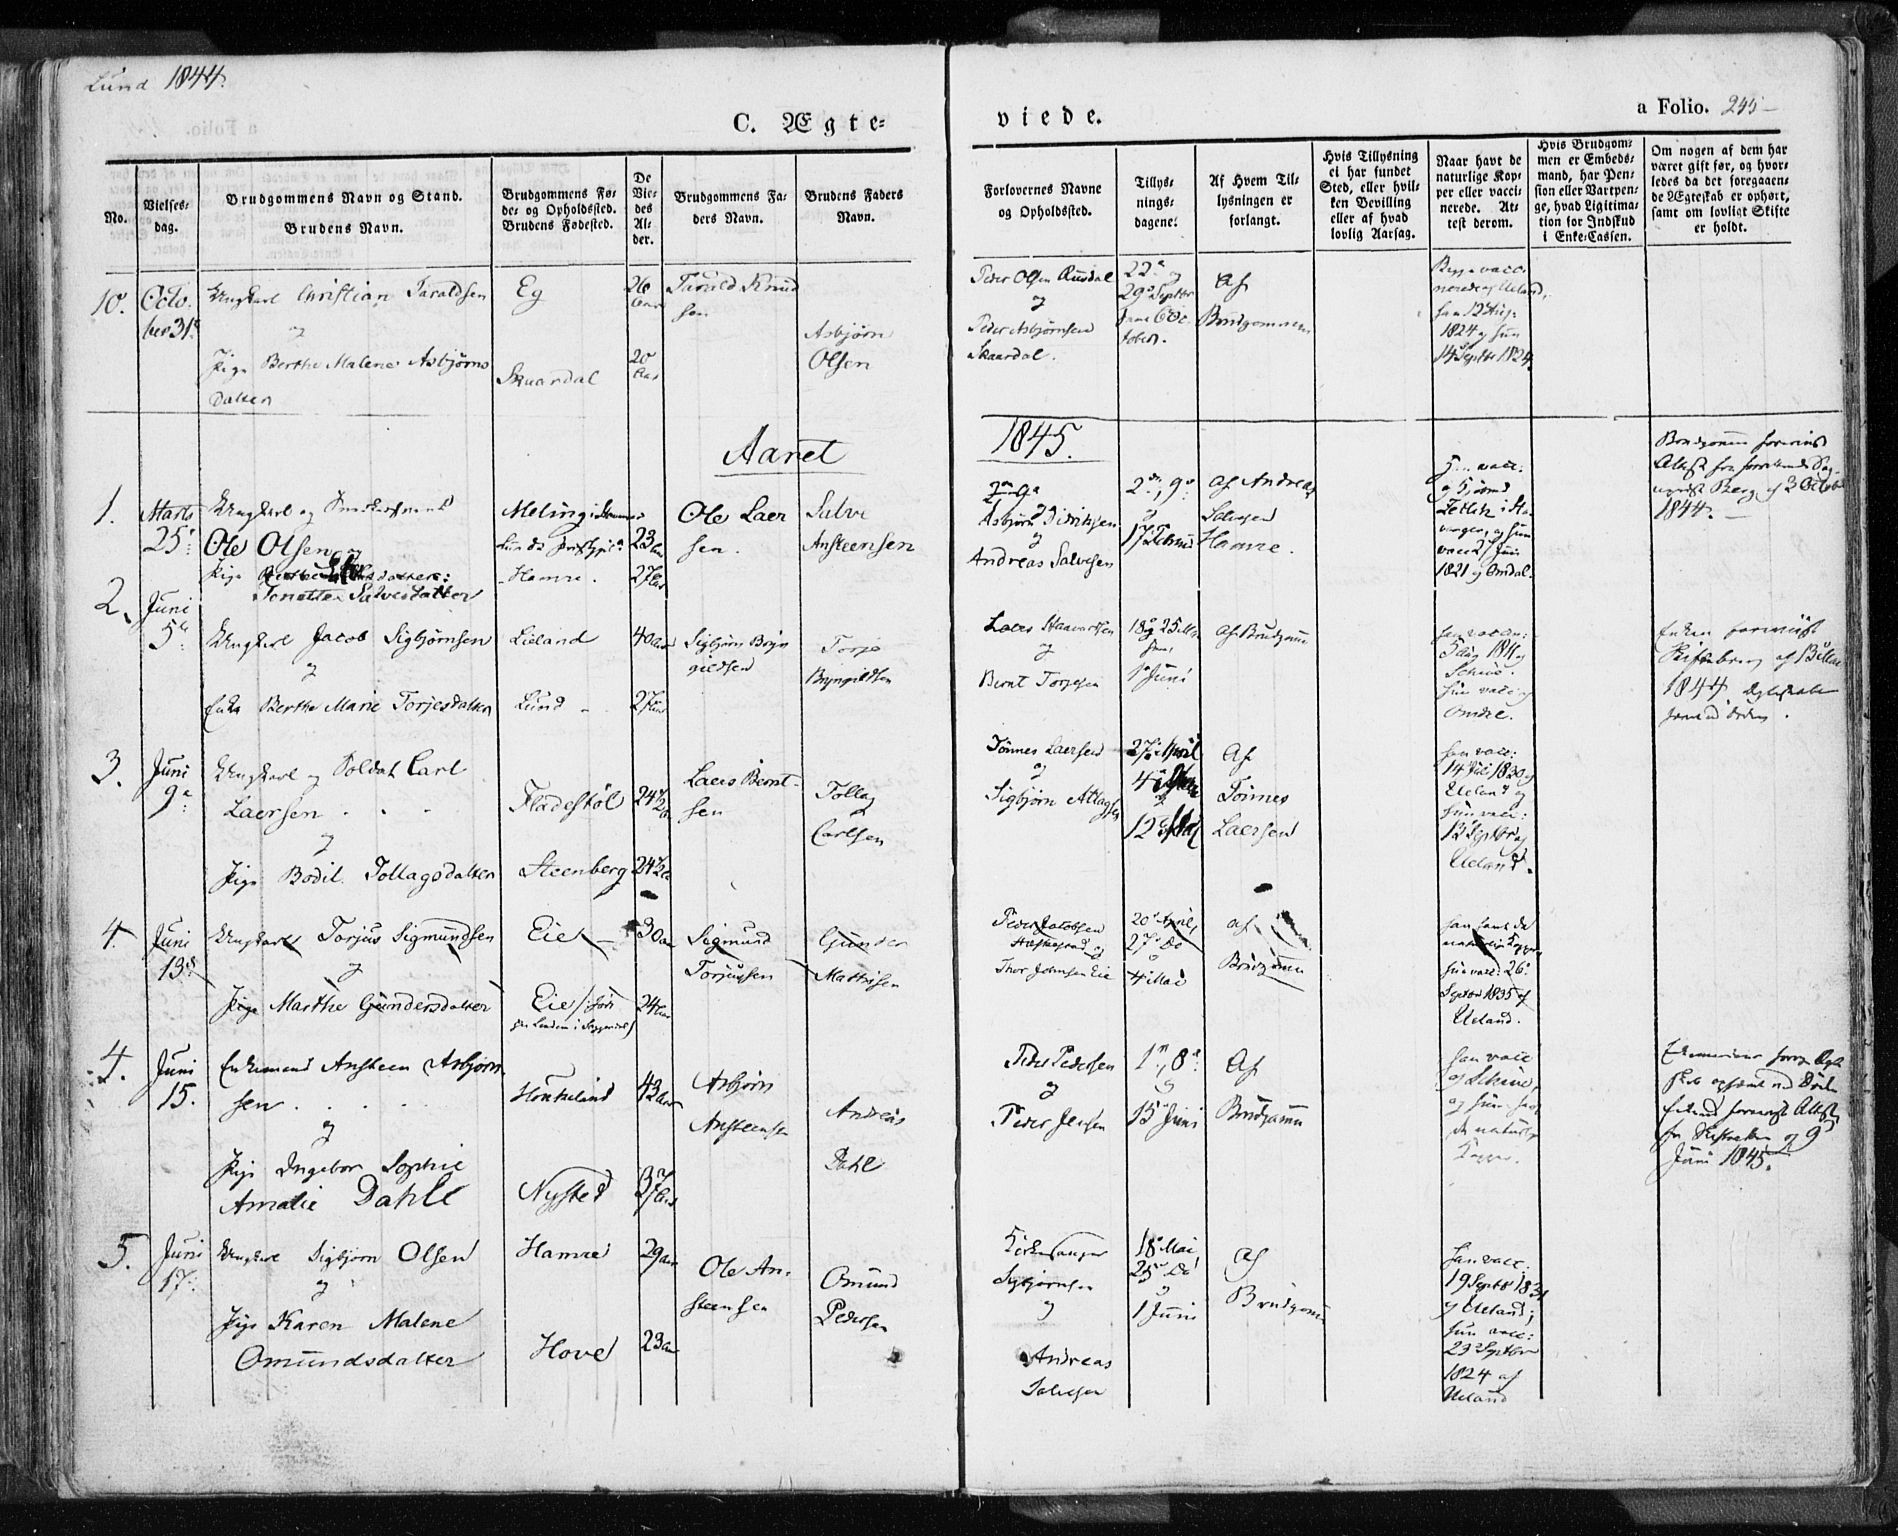 Lund 1844.
C. Ægte=
viede.
a Folio. 245
No.
Vielses=
dag.
Brudgommens Navn og Stand.
Brudens Navn.
Brudgommens Fø=
de= og Opholdssted.
Brudens Fødested.
De
Vie=
des
Al=
der.
Brudgommens Fa=
ders Navn.
Brudens Faders
Navn.
Forlovernes Navne
og Opholdssted.
Tillys=
nings=
dagene.
Af Hvem Til=
lysningen er
forlangt.
Hvis Tillysning
ei har fundet
Sted, eller hvil=
ken Bevilling
eller af hvad
lovlig Aarsag.
Naar havt de
naturlige Kop=
per eller vacci=
nerede. At=
test derom.
Hvis Brudgom=
men er Embeds=
mand, har Pen=
sion eller Vartpen=
ge, hvad Ligitima=
tion for Indskud
i Enke=Cassen.
Om nogen af dem har
været gift før, og hvor=
ledes da det foregaaen=
de Ægteskab er ophørt,
samt om lovligt Skifte
er holdt.
10. Octo
ber 31
Ungkarl Christian Taraldsen
og
Pige Berthe Malene Asbjørns
Datter
Eg
Skaardal
26
Aar
20
Aar
Tarald Knud
sen
Asbjørn
Olsen
Peder Olsen Ruusdal
og
Peder Asbjørnsen
Skaardal.
22 og
29 Septbr
tober.
Af
Brudgommen
Begge vacci
nerede af Ueland,
han 12 Aug.
1824 og hun
14 Septbr 1824.
Aaret
1845.
1. Marts
25
Ungkarl og
Ole Olsen og
Pige
Tonette Salvesdatter
Hamre.
23 Aar
27 Aar
Ole Laer
sen.
Salve
Ansteensen
Asbjørn Diriksen
og
Andreas Salvesen
2, 9
og
Af Andreas
Salvesen
Hamre.
1821 af Omdal.
Brudgommen foreviist
Attest fra
1844.
2. Juni
5
Ungkarl Jacob Sigbjørnsen
og
Enke Berthe Marie Torjesdatter
Lieland
Lund
40 Aar
27 Aar
Sigbjørn Bryn
gildsen
Torje
Bryngildsen
Laers Haavardsen
og
Bernt Torjesen
18 og 25 Mai
1 Juni
Af Brudgommen
han vacc:
1811 af
Schiue.
hun vacc af
Omdal.
Enken foreviist
Skiftebrev af
1844
3. Juni
9
Ungkarl og Soldat Carl
Laersen
og
Pige Bodil Tollagsdatter
Fladestøl
Steenberg
24½
24½
Laers Bernt
sen
Tollag
Carlsen
Tönnes Laersen
og
Sigbjørn Atlagsen
27 April
12
Af
Tönnes
Laersen
han vacc:
14 Juli 1830 af
Ueland og
hun vacc:
12 Septbr af
Ueland.
4. Juni
13
Ungkarl Torjus Sigmundsen
og
Pige Marthe Gundersdatter
Eie
Eie
30 Aar
24 Aar
Sigmund
Torjussen
Gunder
Mathisen
Peder Jacobsen
og
Thor Johnsen Eie
20 April,
27 Do
og
4 Mai
af
Brudgommen
han havt de
naturlige Kopper
hun vacc: 26
Septbr 1835 af
Ueland.
4. Juni
15.
Enkemand Ansteen Asbjørn
sen
og
Pige Ingebor Sophie
Amalie Dahll
Nysted
43 Aar
37 Aar
Asbjørn
Ansteensen
Andreas
Dahl
Peder Pedersen
og
Peder Jensen
1, 8
og
15 Juni
Af
Brudgommen
han vacc
af Schiue,
og hun havt
de naturlige
Kopper.
Juni 1845.
5. Juni
17
Ungkarl Sigbjørn Olsen
og
Pige Karen Malene
Omundsdatter
Hamre
Hove
29 Aar
23 Aar
Ole An
steensen
Omund
Pedersen
Kirkesanger
Sigbjørnsen
og
Andreas
Salvesen
18 Mai,
25 Do
og
1 Juni
Af
Brudgommen
han vacc:
19 Septbr 1831
af Ueland;
hun vacc:
23 Septbr
1824 af
Ueland